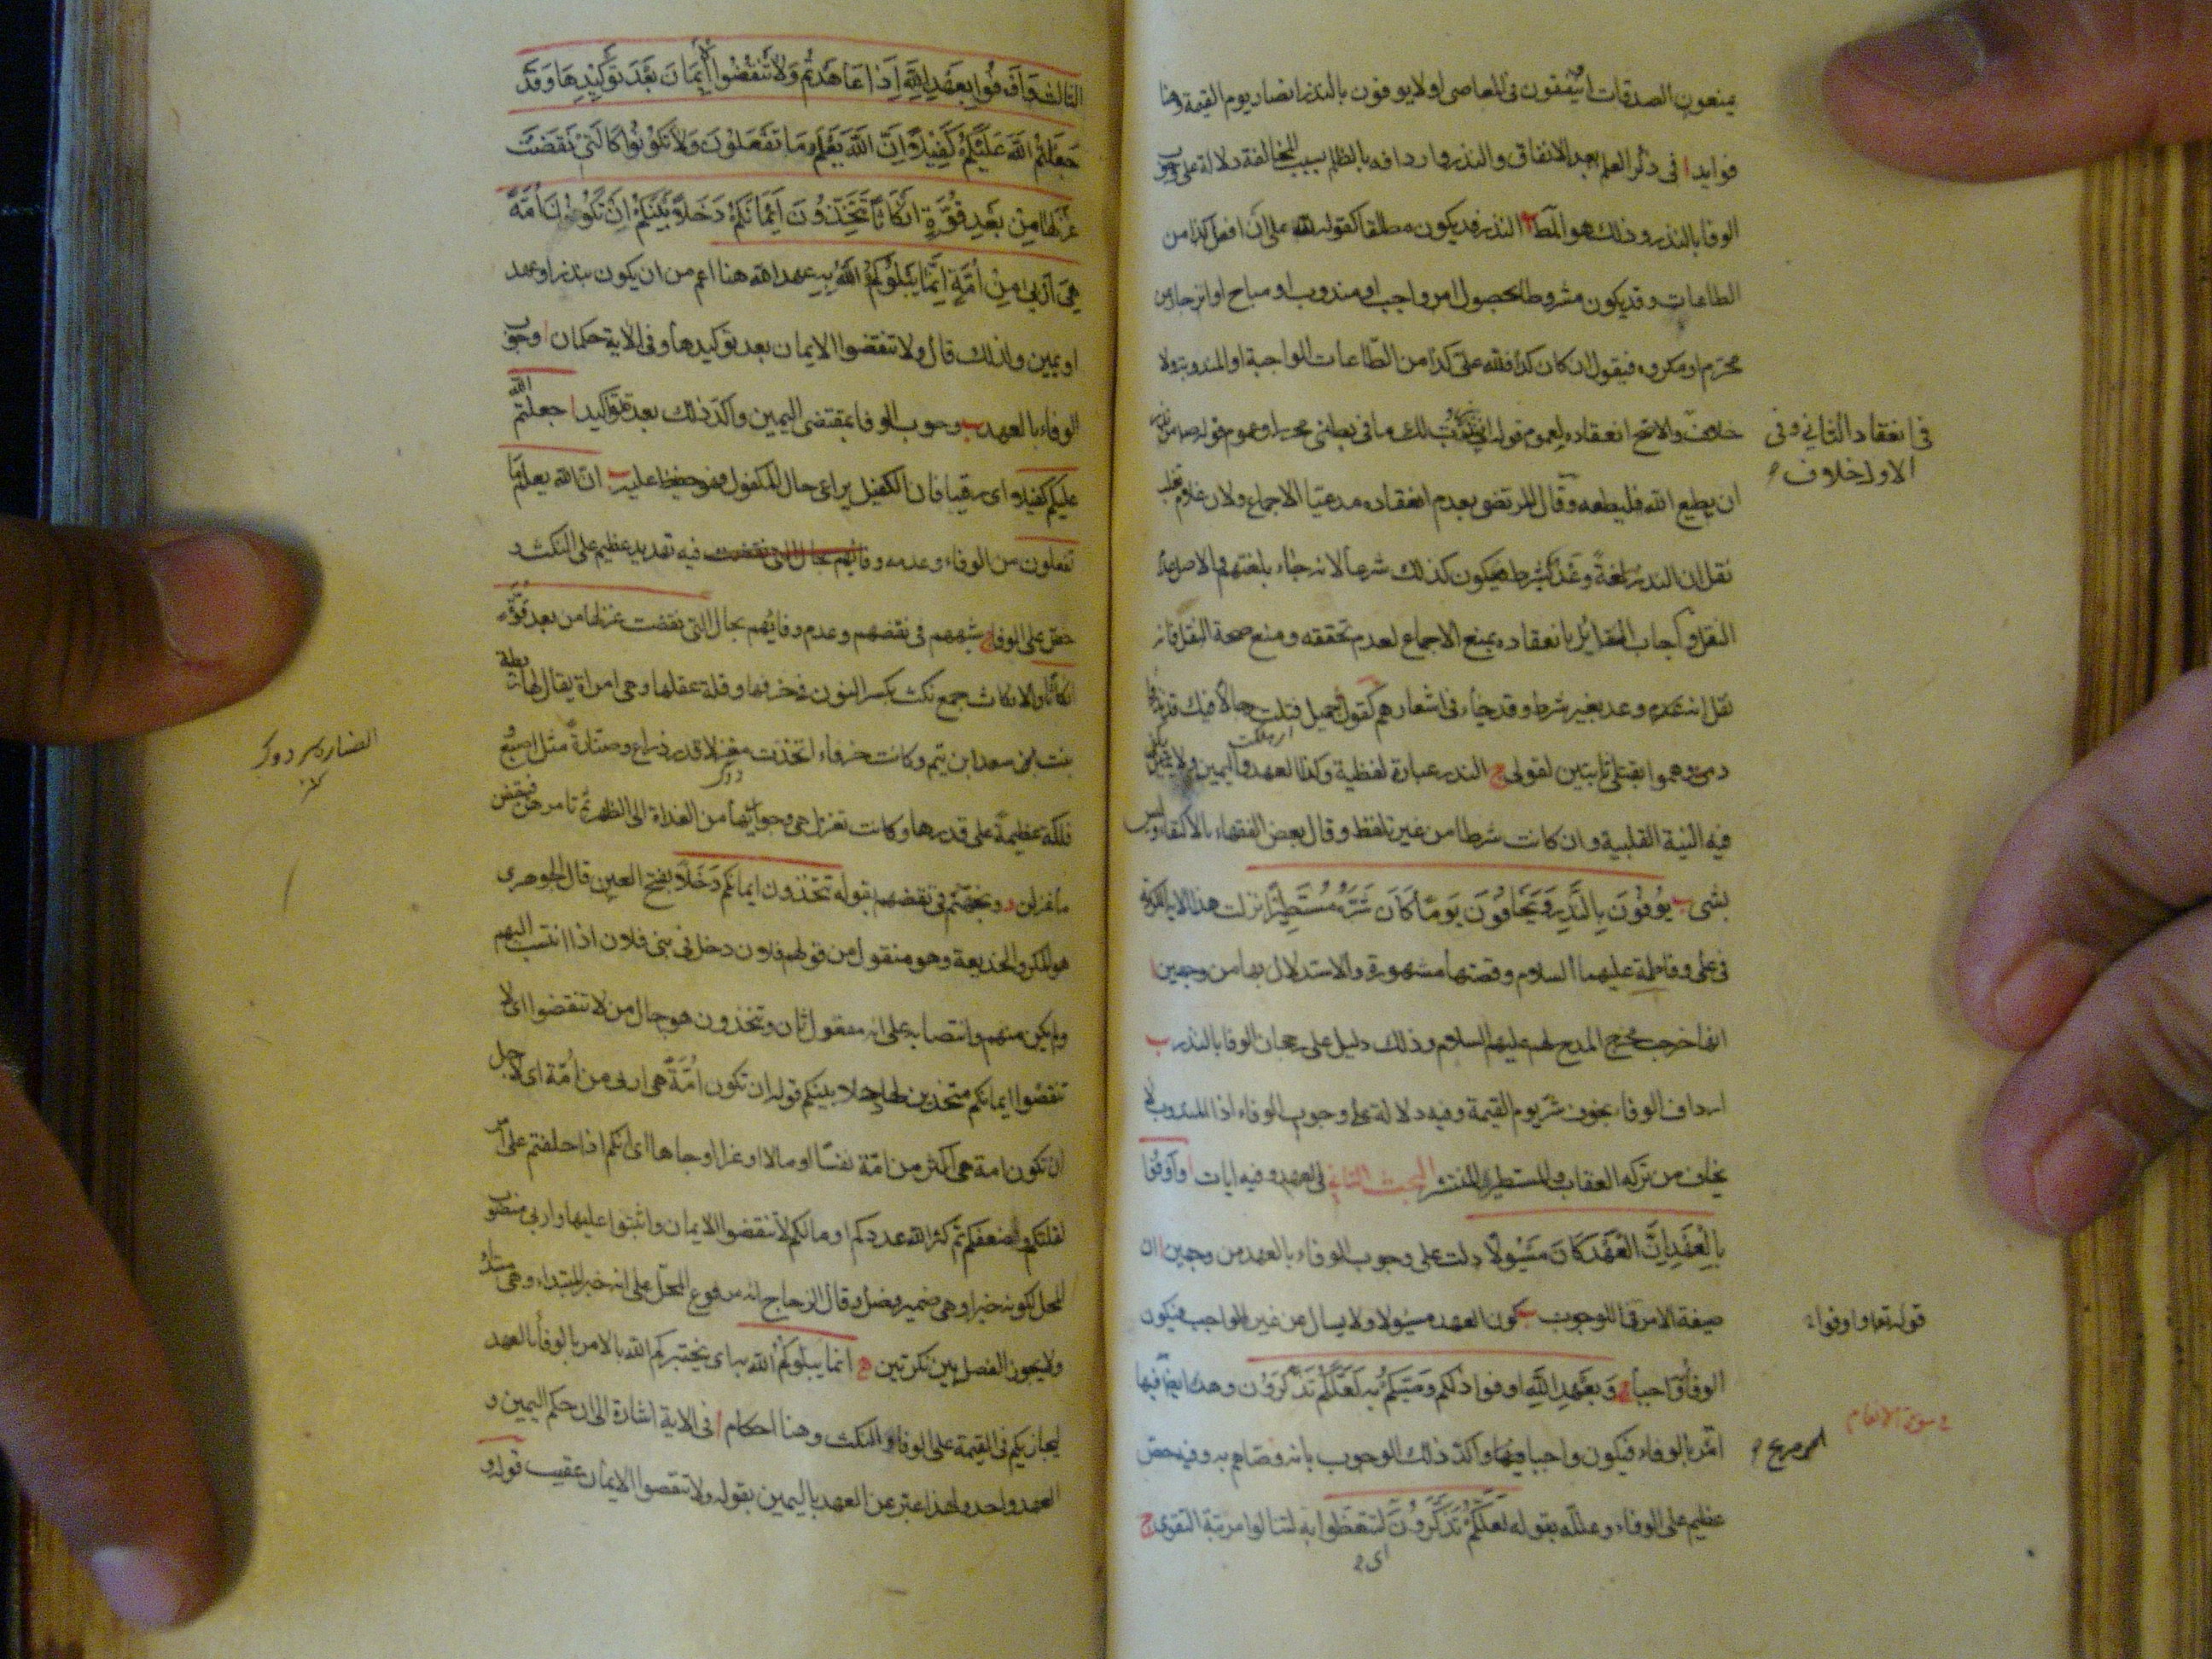 يمنعون الصدقات او ينفقون فى المعاصى او لا يوفون بالنذر انصار يوم القيمة وهنا
فوايد ا فى ذكر العلم بعد الانفاق والنذر وارداقه بالظلم بسبب المخالفة دلالة على وجوب
الوفا بالنذر وذلك هو المط ب النذر قد يكون مطلقا كقوله لله على ان افعل كذا من
الطاعات وقد يكون مشروطا بحصول امر واجب او مندوب او مباح او انزجار من
محرم او مكروه فيقول ان كان كذا فلله على كذا من الطاعات الواجبة او المندوبة ولا
خلاف والاصح انعقاده لعموم قوله انى نذرت لك ما فى بطنى محررا وعموم قوله ص من نذر
فى انعقاد الثانى وفى
الاول خلاف
ان يطيع الله فليطعه وقال المرتضى بعدم انعقاده مدعيا الاجماع ولان غلام ثعلب
نقل ان النذر لغة وعد بشرط فيكون كذلك شرعا لانه جاء بلغتهم والاصل عدم
النقل واجاب القائل بانعقاده بمنع الاجماع لعدم تحققه ومنع صحة النقل فانه
نقل انه عندهم وعد بغير شرط وقد جاء فى اشعارهم كقول جميل فليت رجالا فيك قد نذروا
دمى وهموا بقتلى يا بثين لقونى ج النذر عبارة لفظية وكذا العهد واليمين ولا يكفى
فيه النية القلبية وان كانت شرطا من غير تلفظ وقال بعض الفقهاء بالاكتفاء وليس
بشى ب يوفون بالنذر ويخافون يوما كان شره مستطيرا نزلت هذا الاية الكريمة
فى على وفاطمة عليهما السلام وقصتها مشهورة والاستدلال بها من وجهين ا
انها خرجت مخرج المدح لهم عليهم السلام وذلك دليل على رجحان الوفا بالنذر ب
ارداف الوفاء بخوف شر يوم القيمة وفيه دلالة على وجوب الوفاء اذا المندوب لا
يخاف من تركه العقاب والمستطير المنتشر البحث الثانى فى العهد وفيه ايات ا واوفوا
بالعهد ان العهد كان مسئولا دلت على وجوب الوفاء بالعهد من وجهين ا ان
صيغة الامر للوجوب ب كون العهد مسئولا ولا يسال من غير الواجب فيكون
قوله تعا واوفوا
الوفاء واجبا ب وبعهد الله اوفوا ذلكم وصيكم به لعلكم تذكرون وهذا ايضا فيها
فى سورة الانعام
امر بالوفاء فيكون واجبا فيها واكد ذلك الوجوب بانه وصاهم به وفيه حض
عظيم على الوفاء وعلله بقوله لعلكم تذكرون لتتعظوا به لتنالوا مرتبة التقوى ج
اى
الثالثة واوفوا بعهد الله اذا عاهدتم ولا تنقضوا الايمان بعد توكيدها وقد
جعلتم الله عليكم كفيلا ان الله يعلم ما تفعلون ولا تكونوا كالتى نقضت
غزلها من بعد قوة انكاثا تتخذون ايمانكم دخلا بينكم ان تكون امة
هى اربى من امة انما يبلوكم الله به عهد الله هنا اعم من ان يكون بنذر او عهد
او يمين ولذلك قال ولا تنقضوا الايمان بعد توكيدها وفى الاية حكمان ا وجوب
الوفاء بالعهد ب وجوب الوفا بمقتضى اليمين واكد ذلك بعد توكيد ا جعلتم الله
عليكم كفيلا اى رقيبا فان الكفيل يراعى حال المكفول فهو حفيظ عليه ب ان الله يعلم ما
تفعلون من الوفاء وعدمه فيه تهديد عظيم على النكث و
حض على الوفا ج شبههم فى نقضهم وعدم وفائهم بحال التى نقضت غزلها من بعد قوة
انكاثا والانكاث جمع نكث بكسر النون فى خرقها وقلة عقلها وهى امراة يقال لها ريطة
بنت سعد ابن تيم وكانت خرقاء اتخذت مغزلا قدر ذراع وصنارة مثل اصبع
فلكة عظيمة على قدرها وكانت تغزل هى وجواريها من الغداة الى الظهر ثم تامرهن فينقضن
ما غزلن د وبخهم فى نقضهم بقوله تتخذون ايمانكم دخلا بفتح العين قال الجوهرى
هو المكر والخديعة وهو منقول من قولهم فلان دخل فى بنى فلان اذا انتسب اليهم
ولم يكن منهم وانتصابه على انه مفعول ثان وتتخذون هو حال من لا تنقضوا اى لا
تنقضوا ايمانكم متخذين لها دخلا بينكم قوله ان تكون امة هى اربى من امة اى لاجل
ان تكون امة هى اكثر من امة نفسا او مالا او عزا او جاها اى انكم اذا حلفتم على امر
لقلتكم وضعفكم ثم كثر الله عددكم او مالكم لا تنقضوا الايمان واثبتوا عليها واربى منصوب
المحل لكونه خبرا وهى ضمير فصل وقال الزجاج انه مرفوع المحل على انه خبر المبتداء وهى مبتدا
ولا يجوز الفصل بين نكرتين ه انما يبلوكم الله به اى يختبركم الله بالامر بالوفاء بالعهد
ليجازيكم فى القيمة على الوفاء والنكث وهنا احكام ا فى الاية اشارة الى ان حكم اليمين و
العهد واحد ولهذا عبر عن العهد باليمين بقوله ولا تنقضوا الايمان عقيب قوله و